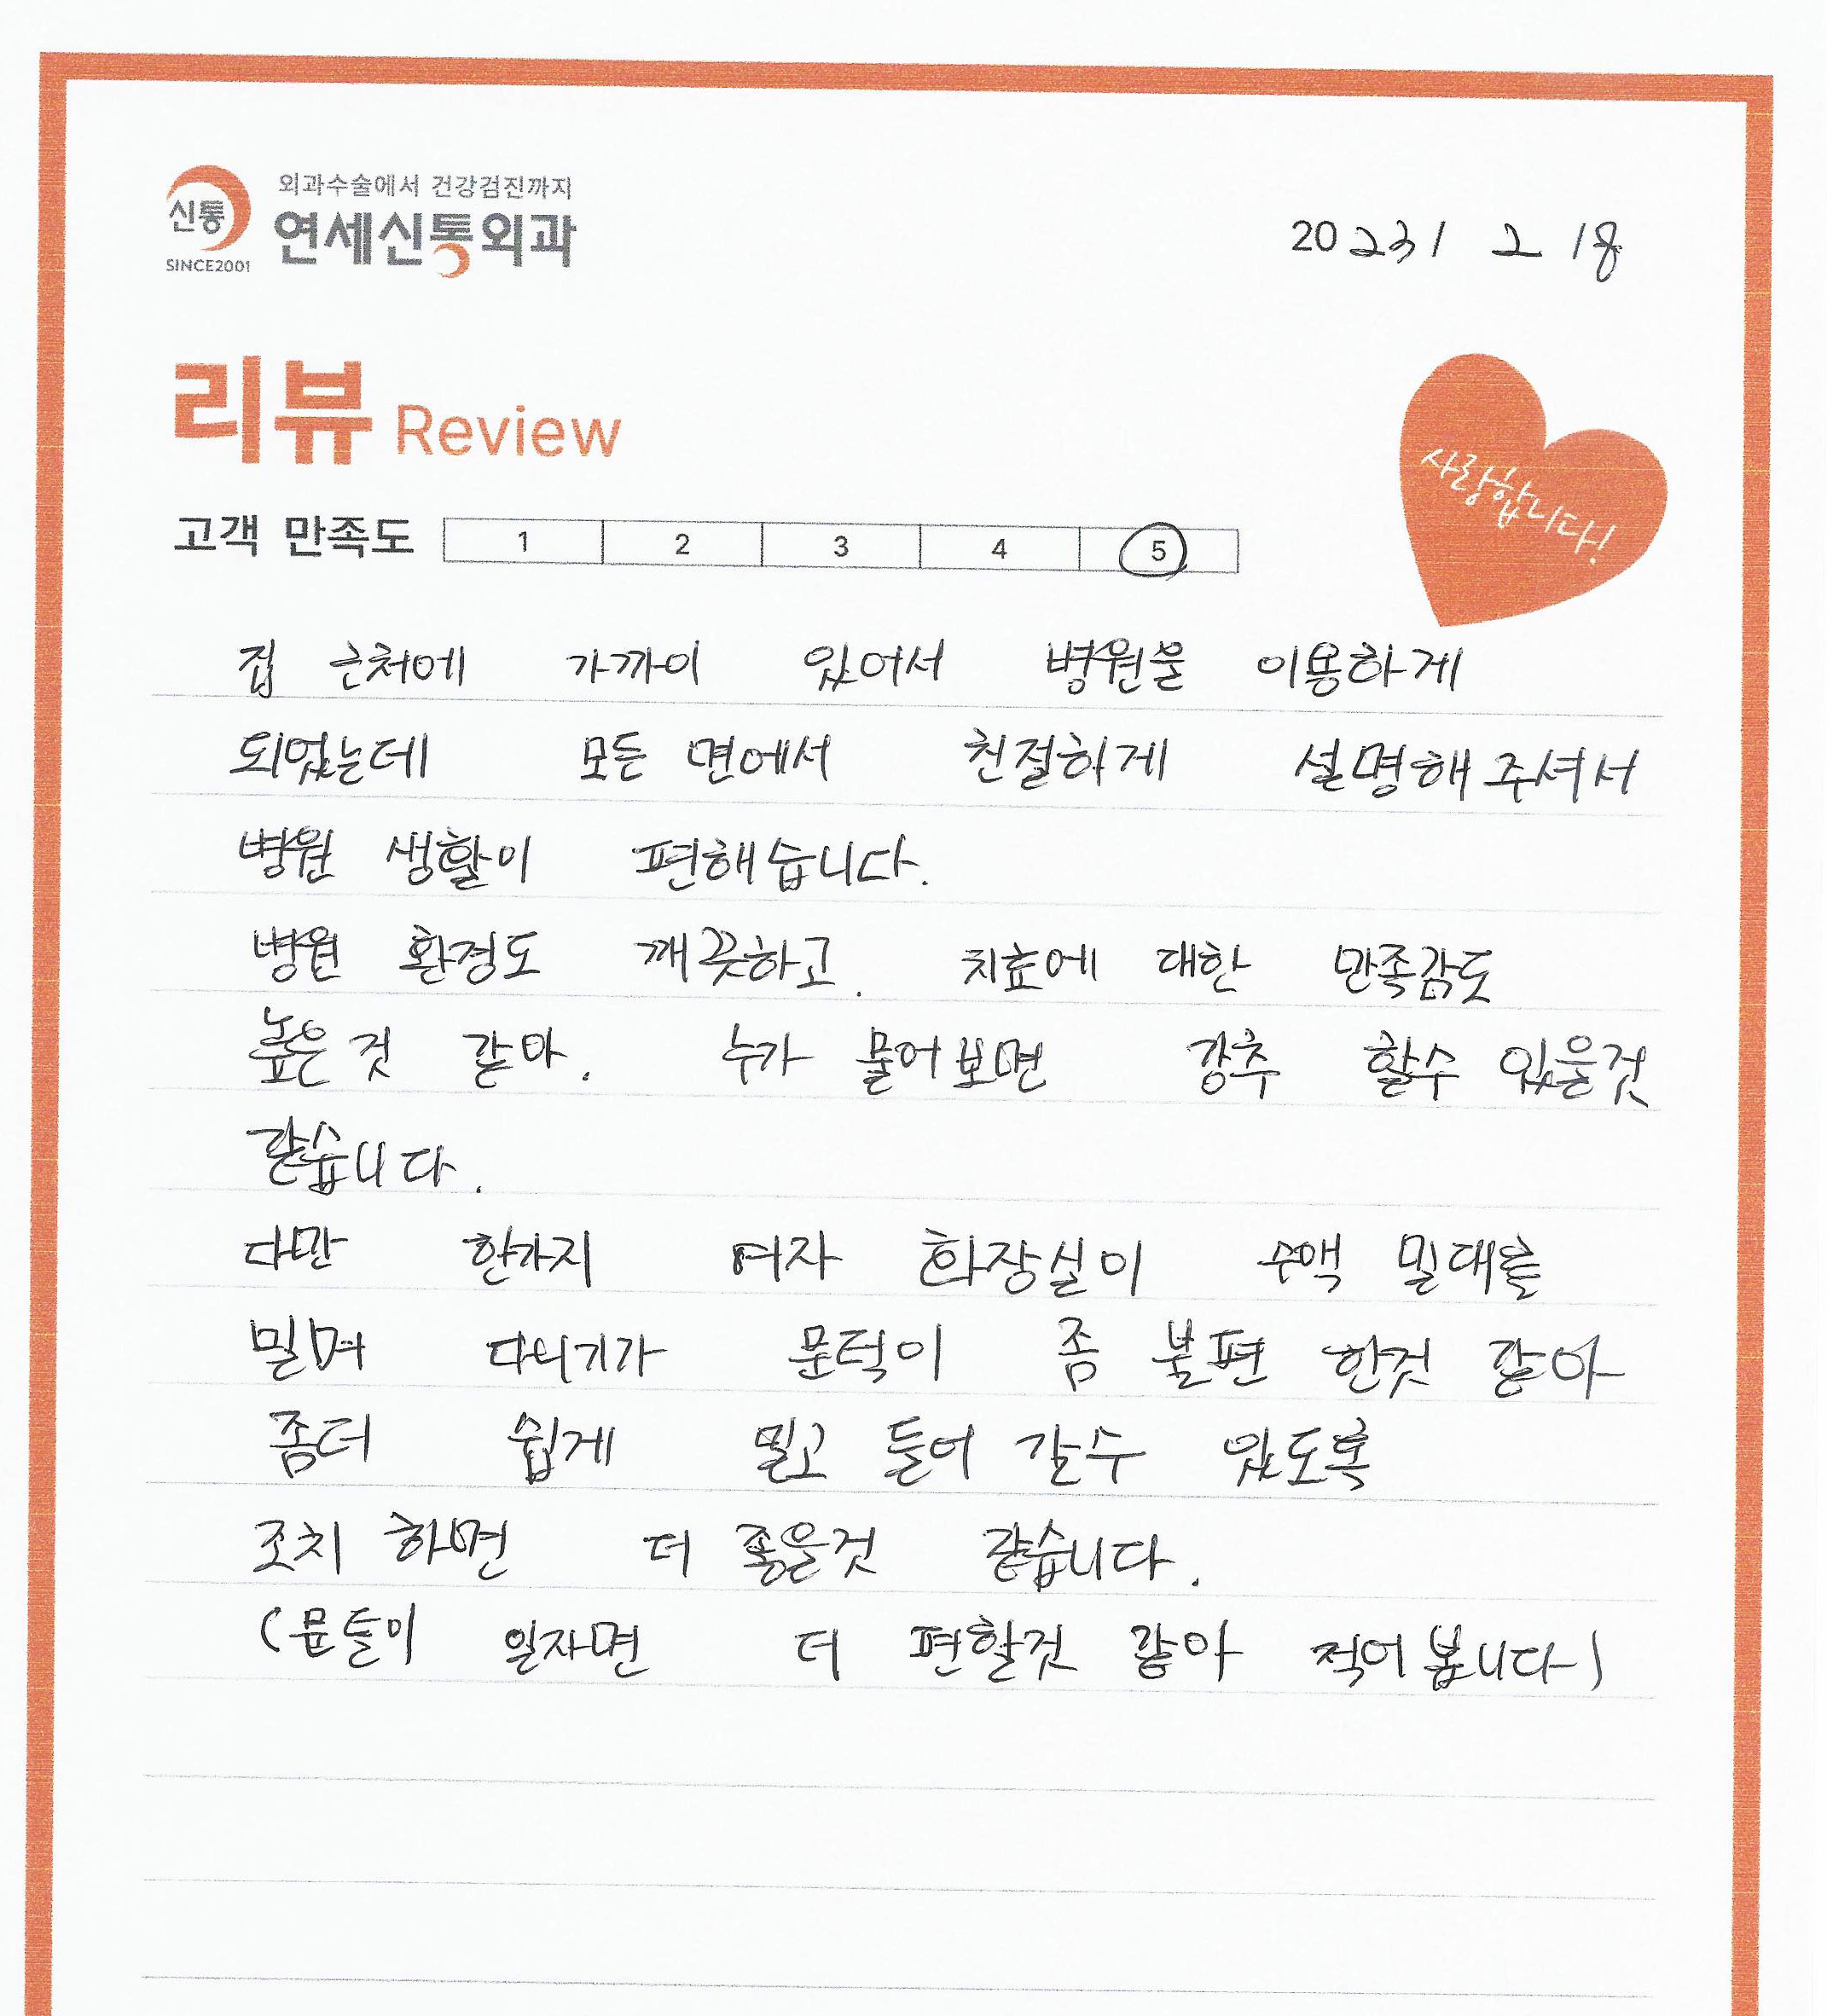 외과수술에서 건강검진까지
신통
연세신통외과
SINCE2001
2023 / 2 18
리뷰 Review
사랑합니다!
고객 만족도 1 2 3 4 5
집 근처에 가까이 있어서 병원을 이용하게
되었는데 모든 면에서 친절하게 설명해 주셔서
병원 생활이 편해습니다.
병원 환경도 깨끗하고. 치효에 대한 만족감도
높은 것 같아. 누가 물어보면 강추 할수 있을것
같습니다.
다만 한가지 여자 화장실이 수액 밀대를
밀며 다니기가 문턱이 좀 불편 한것 같아
좀더 쉽게 밀고 들어 갈수 있도록
조치 하면 더 좋을것 같습니다.
(문틀이 일자면 더 편할것 같아 적어 봅니다)